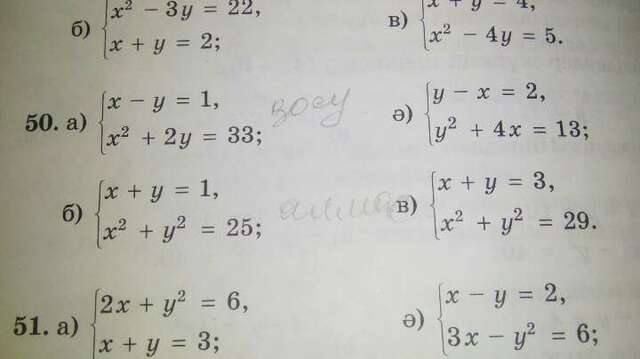 б) x² − 3y = 22,
x + y = 2;
в) x + y = 4,
x² − 4y = 5.
50. а) x − y = 1,
x² + 2y = 33;
қосу
ә) y − x = 2,
y² + 4x = 13;
б) x + y = 1,
x² + y² = 25;
в) x + y = 3,
x² + y² = 29.
51. а) 2x + y² = 6,
x + y = 3;
ә) x − y = 2,
3x − y² = 6;